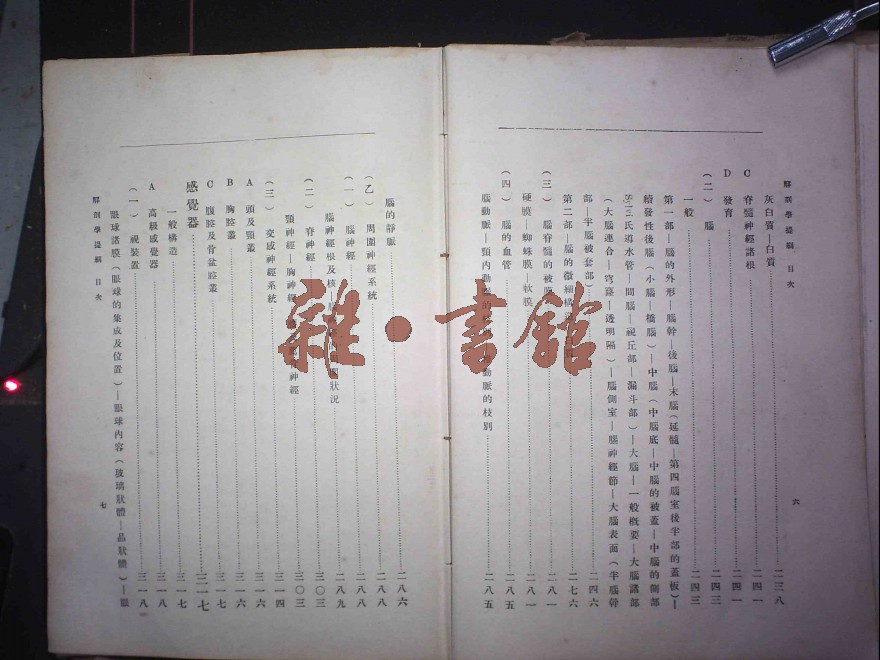 解剖學提綱 目次
灰白質—白質 二三八
C 脊髓神經諸根 二四一
D 發育 二四一
(二) 腦 二四三
一般 二四三
第一部—腦的外形—腦幹—後腦—末腦(延髓—第四腦室後半部的蓋板)—
續發性後腦(小腦—橋腦)—中腦(中腦底—中腦的被蓋—中腦的側部
氏導水管—間腦—視丘部—漏斗部)—大腦—一般概要—大腦諸部
(大腦連合—穹窿—透明隔)—腦側室—腦神經節—大腦表面(半腦幹
部—半腦被套部) 二四六
第二部—腦的微細構造 二七六
(三) 腦脊髓的被膜 二八一
硬膜—蜘蛛膜—軟膜 二八一
(四) 腦的血管 二八五
腦動脈—頸內動脈的 動脈的枝別 二八五
六
腦的靜脈 二八六
(乙) 周圍神經系統 二八八
(一) 腦神經 二八八
腦神經根及核 狀況 二八九
(二) 脊神經 三〇三
頸神經—胸神經 神經 三〇三
(三) 交感神經系統 三一四
A 頭及頸叢 三一六
B 胸腔叢 三一六
C 腹腔及骨盆腔叢 三一七
感覺器 三一七
一般構造 三一七
A 高級感覺器 三一八
(一) 視裝置 三一八
眼球諸膜(眼球的集成及位置)—眼球內容(玻璃狀體—晶狀體)—眼
解剖學提綱 目次
七
雜·書館